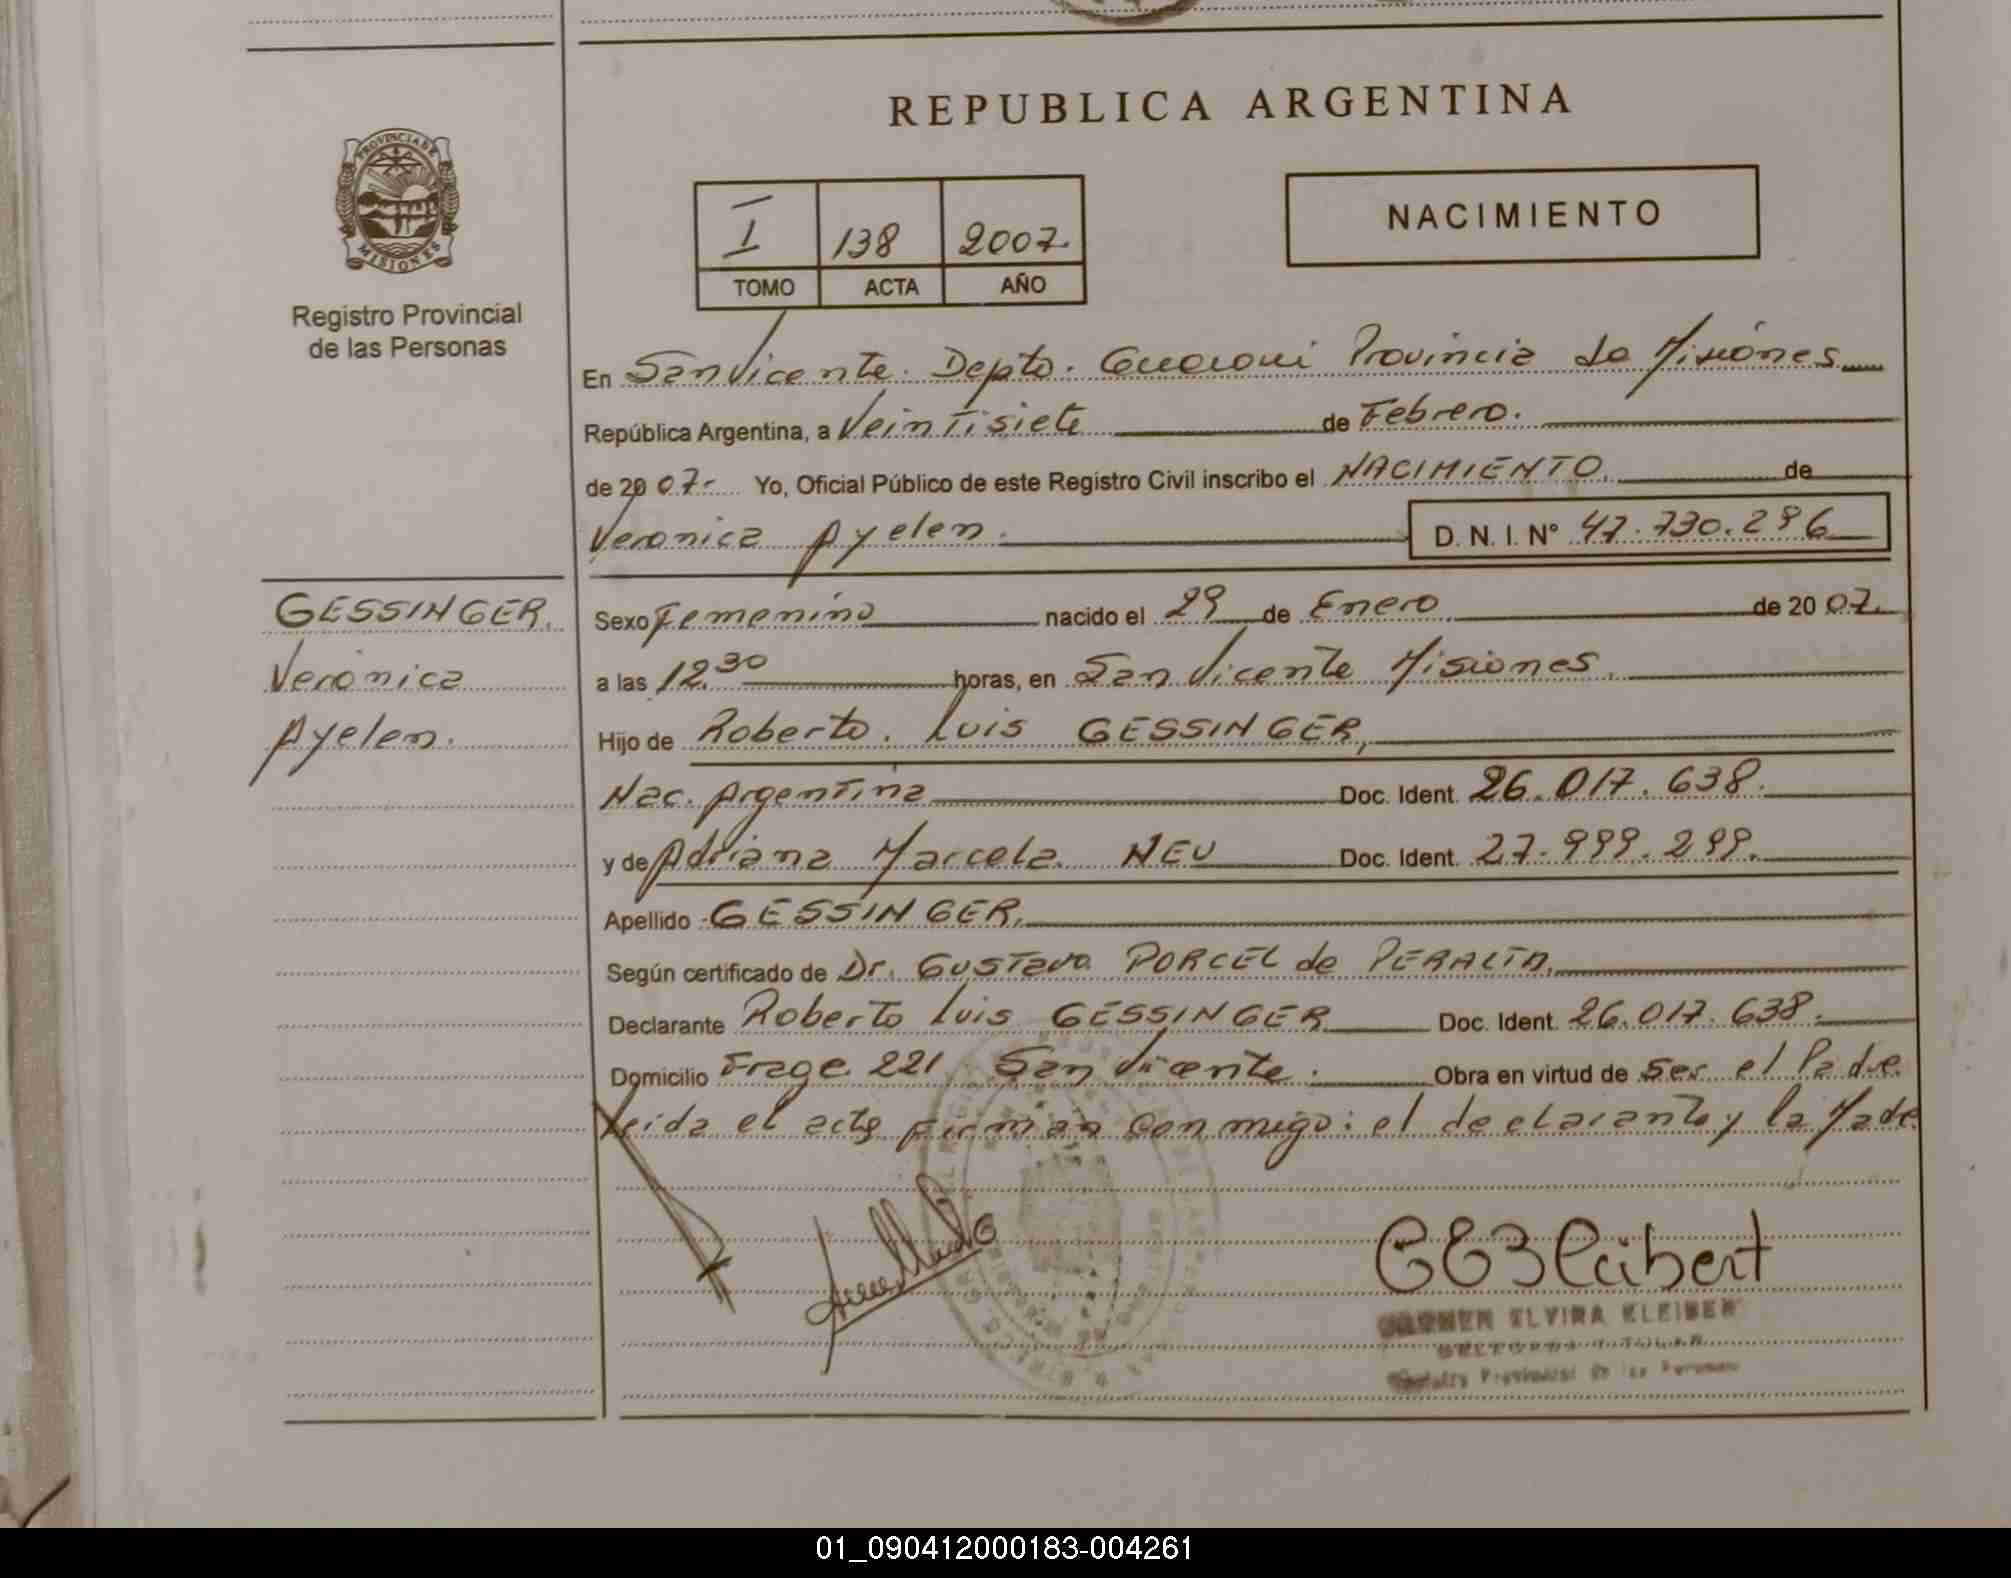 REPUBLICA ARGENTINA
PROVINCIA DE MISIONES
Registro Provincial
de las Personas
I 138 2007
TOMO ACTA AÑO
NACIMIENTO
En San Vicente. Depto. Guarani Provincia de Misiones
República Argentina, a Veintisiete de Febrero.
de 2007.- Yo, Oficial Público de este Registro Civil inscribo el NACIMIENTO. de
Veronica Ayelen. D. N. I. N° 47.730.296
GESSINGER.
Veronica
Ayelen.
Sexo Femenino nacido el 29 de Enero de 2007.
a las 12.30 horas, en San Vicente Misiones.
Hijo de Roberto. Luis GESSINGER,
Nac. Argentina Doc. Ident. 26.017.638.
y de Adriana Marcela. NEU Doc. Ident. 27.999.299.
Apellido GESSINGER.
Según certificado de Dr. Gustavo PORCEL de PERALTA.
Declarante Roberto Luis GESSINGER Doc. Ident. 26.017.638.
Domicilio Frage. 221 San Vicente. Obra en virtud de Ser el Padre.
Leida el acta firman conmigo: el declarante y la Madre
ELVIRA KLEIBER
Provincial de las Personas
01_090412000183-004261